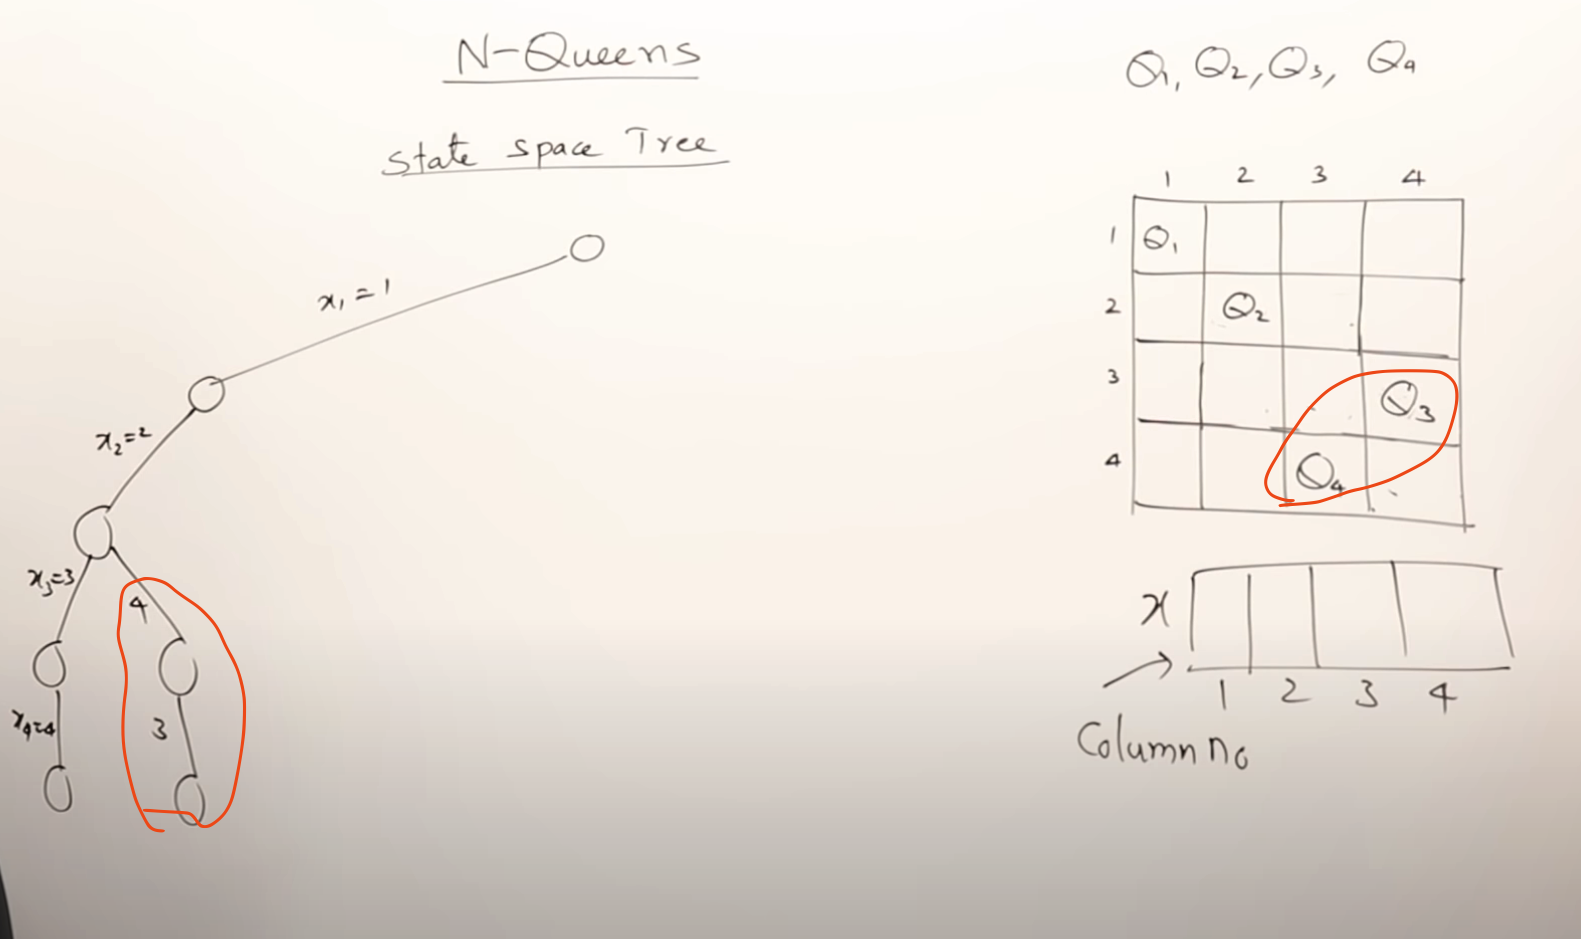 N-Queens
State space Tree
x₁=1
x₂=2
x₃=3
4
x₄=4
3
Q₁, Q₂, Q₃, Q₄
1 2 3 4
1 Q₁
2 Q₂
3 Q₃
4 Q₄
x
1 2 3 4
Column no